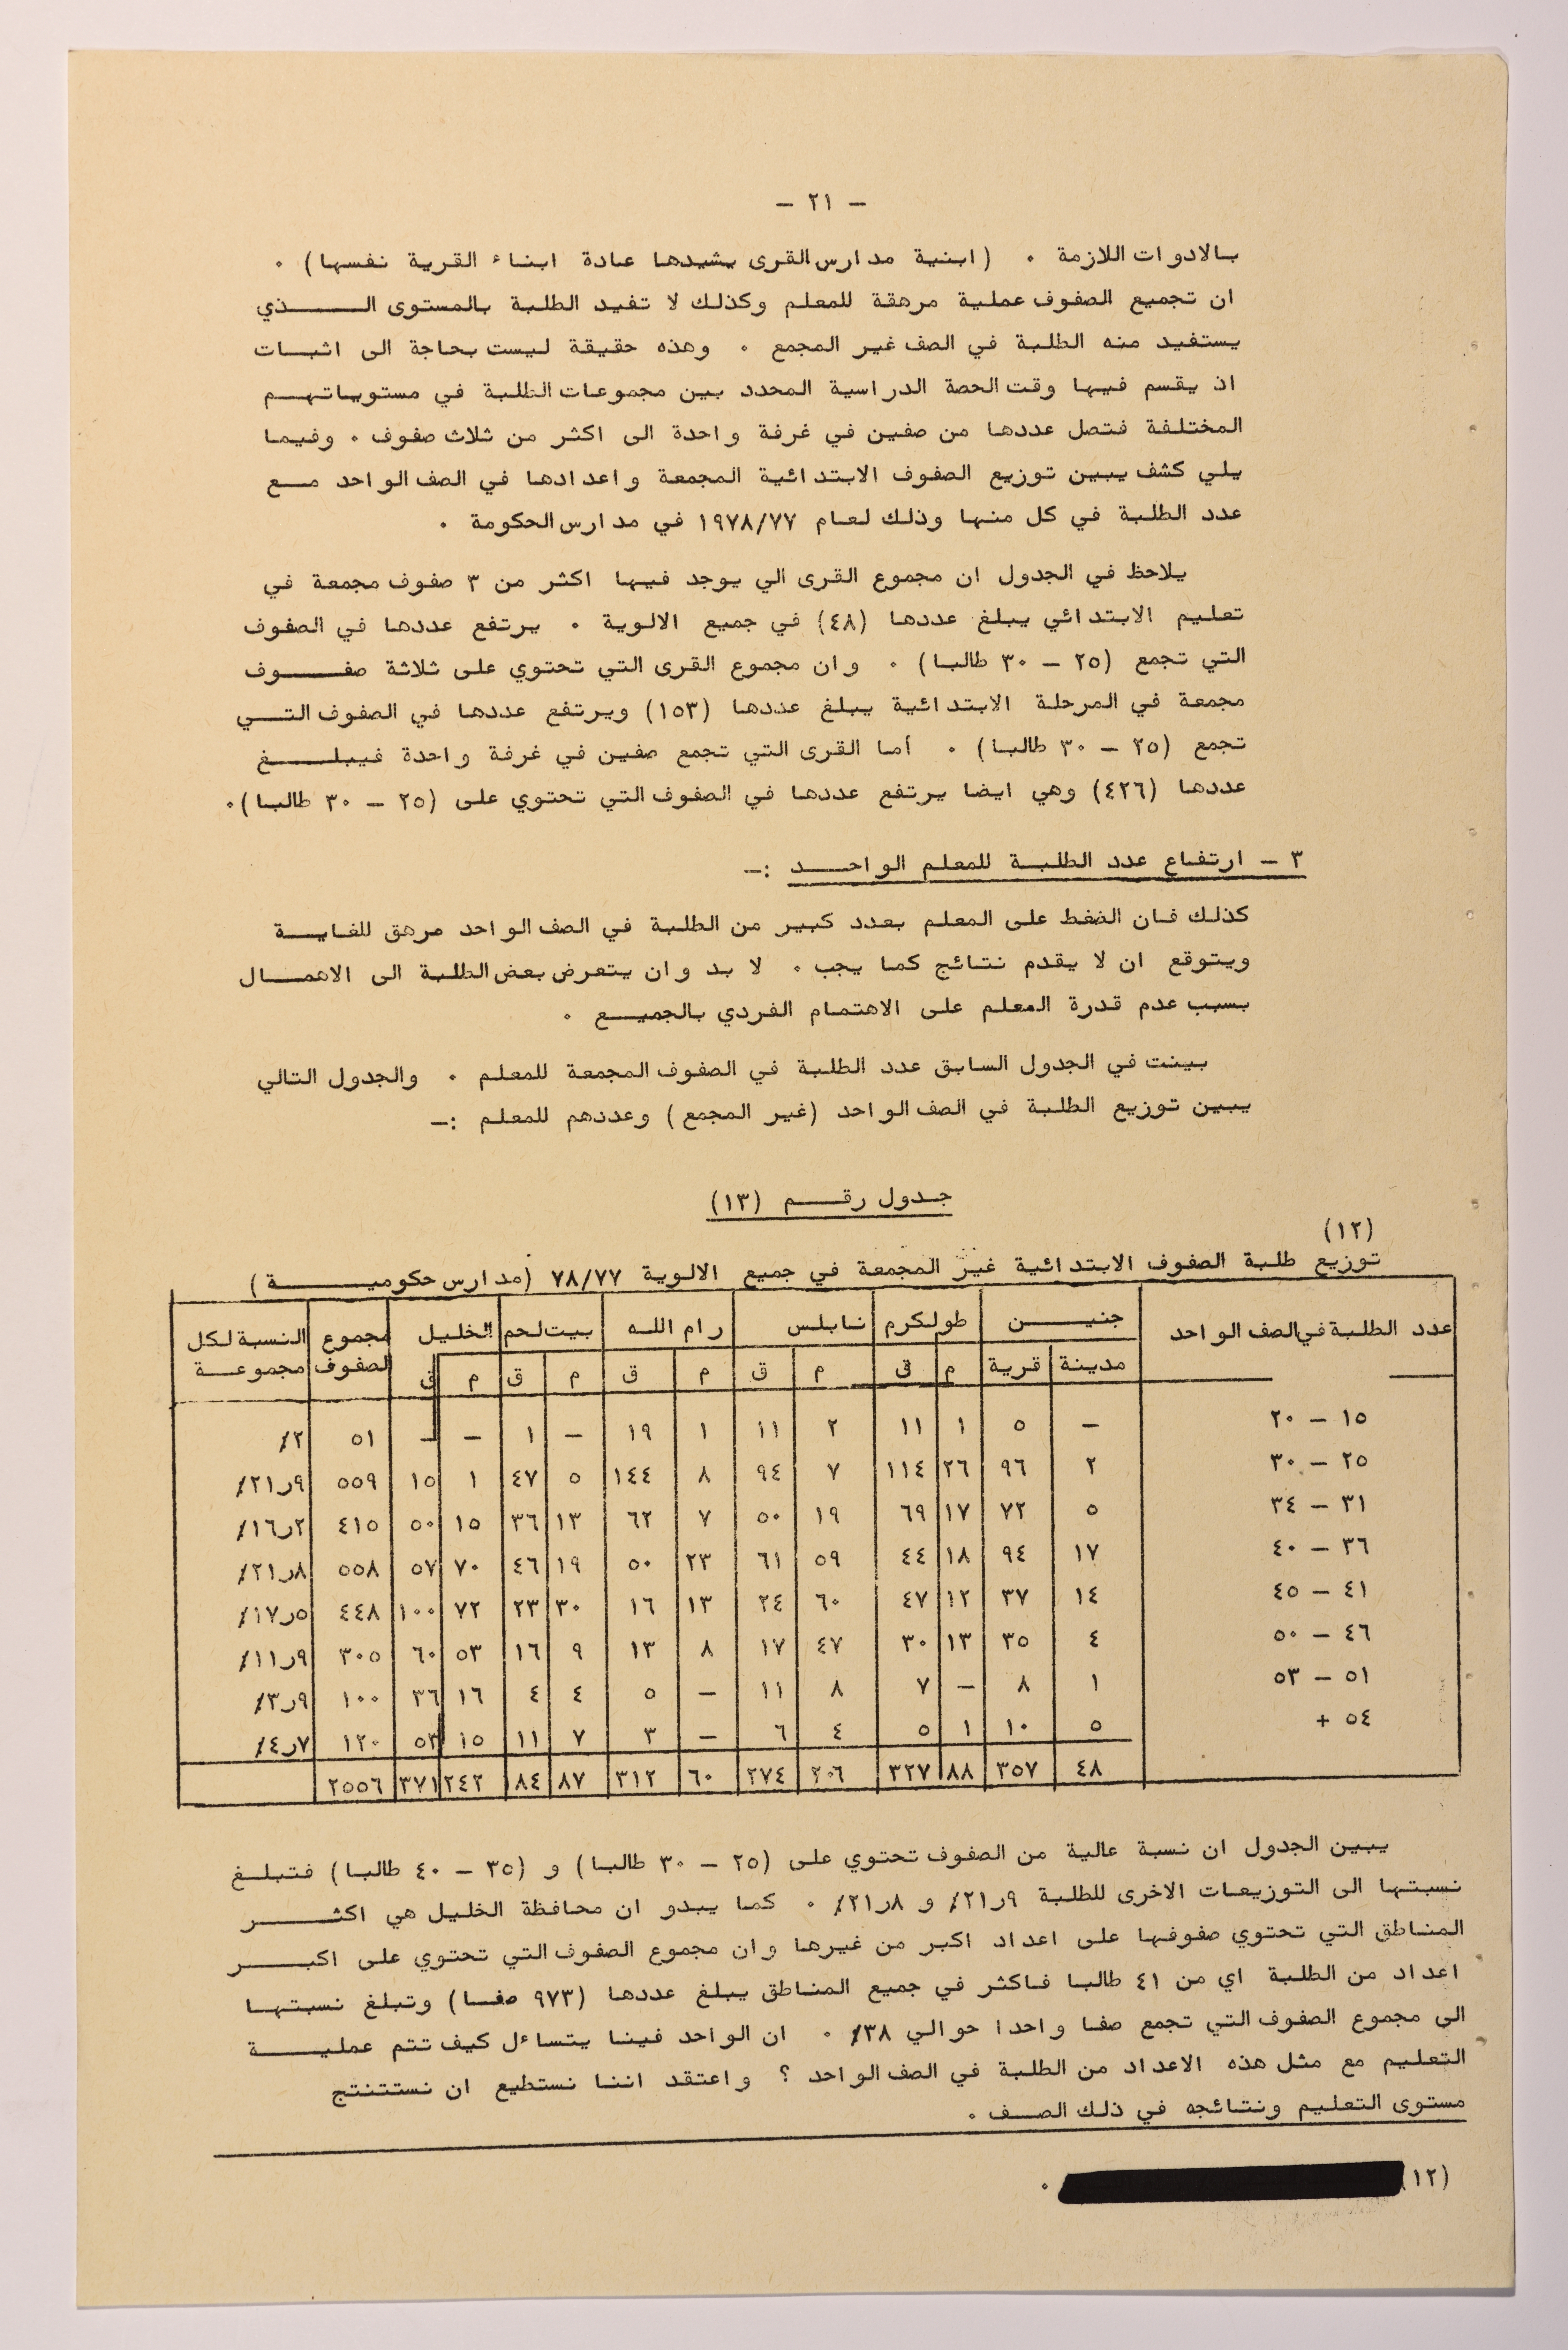 - ٢١ -
بالادوات اللازمة . (ابنية مدارس القرى يشيدها عادة ابناء القرية نفسها) .
ان تجميع الصفوف عملية مرهقة للمعلم وكذلك لا تفيد الطلبة بالمستوى الـذي
يستفيد منه الطلبة في الصف غير المجمع . وهذه حقيقة ليست بحاجة الى اثبـات
اذ يقسم فيها وقت الحصة الدراسية المحدد بين مجموعات الطلبة في مستوياتهـم
المختلفة فتصل عددها من صفين في غرفة واحدة الى اكثر من ثلاث صفوف . وفيما
يلي كشف يبين توزيع الصفوف الابتدائية المجمعة واعدادها في الصف الواحد مـع
عدد الطلبة في كل منها وذلك لعام ١٩٧٨/٧٧ في مدارس الحكومة .
يلاحظ في الجدول ان مجموع القرى الي يوجد فيها اكثر من ٣ صفوف مجمعة في
تعليم الابتدائي يبلغ عددها (٤٨) في جميع الالوية . يرتفع عددها في الصفوف
التي تجمع (٢٥ - ٣٠ طالبا) . وان مجموع القرى التي تحتوي على ثلاثة صفـوف
مجمعة في المرحلة الابتدائية يبلغ عددها (١٥٣) ويرتفع عددها في الصفوف التـي
تجمع (٢٥ - ٣٠ طالبا) . أما القرى التي تجمع صفين في غرفة واحدة فيبلـغ
عددها (٤٢٦) وهي ايضا يرتفع عددها في الصفوف التي تحتوي على (٢٥ - ٣٠ طالبا).
٣ - ارتفاع عدد الطلبة للمعلم الواحـد :-
كذلك فان الضغط على المعلم بعدد كبير من الطلبة في الصف الواحد مرهق للغايـة
ويتوقع ان لا يقدم نتائج كما يجب . لا بد وان يتعرض بعض الطلبة الى الاهمـال
بسبب عدم قدرة المعلم على الاهتمام الفردي بالجميـع .
بينت في الجدول السابق عدد الطلبة في الصفوف المجمعة للمعلم . والجدول التالي
يبين توزيع الطلبة في الصف الواحد (غير المجمع) وعددهم للمعلم :-
جدول رقـم (١٣)
(١٢)
توزيع طلبة الصفوف الابتدائية غير المجمعة في جميع الالوية ٧٨/٧٧ (مدارس حكوميـة)
عدد الطلبة في الصف الواحد جنيـن طولكرم نابلس رام الله بيت لحم الخليل مجموع الصفوف النسبة لكل مجموعـة
مدينة قرية م ق م ق م ق م ق م ق
١٥ - ٢٠ - ٥ ١ ١١ ٢ ١١ ١ ١٩ - ١ - - ٥١ ٢٪
٢٥ - ٣٠ ٢ ٩٦ ٢٦ ١١٤ ٧ ٩٤ ٨ ١٤٤ ٥ ٤٧ ١ ١٥ ٥٥٩ ٩ر٢١٪
٣١ - ٣٤ ٥ ٧٢ ١٧ ٦٩ ١٩ ٥٠ ٧ ٦٢ ١٣ ٣٦ ١٥ ٥٠ ٤١٥ ٢ر١٦٪
٣٦ - ٤٠ ١٧ ٩٤ ١٨ ٤٤ ٥٩ ٦١ ٢٣ ٥٠ ١٩ ٤٦ ٧٠ ٥٧ ٥٥٨ ٨ر٢١٪
٤١ - ٤٥ ١٤ ٣٧ ١٢ ٤٧ ٦٠ ٢٤ ١٣ ١٦ ٣٠ ٢٣ ٧٢ ١٠٠ ٤٤٨ ٥ر١٧٪
٤٦ - ٥٠ ٤ ٣٥ ١٣ ٣٠ ٤٧ ١٧ ٨ ١٣ ٩ ١٦ ٥٣ ٦٠ ٣٠٥ ٩ر١١٪
٥١ - ٥٣ ١ ٨ - ٧ ٨ ١١ - ٥ ٤ ٤ ١٦ ٣٦ ١٠٠ ٩ر٣٪
٥٤ + ٥ ١٠ ١ ٥ ٤ ٦ - ٣ ٧ ١١ ١٥ ٥٣ ١٢٠ ٧ر٤٪
٤٨ ٣٥٧ ٨٨ ٣٢٧ ٢٠٦ ٢٧٤ ٦٠ ٣١٢ ٨٧ ٨٤ ٢٤٢ ٣٧١ ٢٥٥٦
يبين الجدول ان نسبة عالية من الصفوف تحتوي على (٢٥ - ٣٠ طالبا) و (٣٥ - ٤٠ طالبا) فتبلـغ
نسبتها الى التوزيعات الاخرى للطلبة ٩ر٢١٪ و ٨ر٢١٪ . كما يبدو ان محافظة الخليل هي اكثـر
المناطق التي تحتوي صفوفها على اعداد اكبر من غيرها وان مجموع الصفوف التي تحتوي على اكبـر
اعداد من الطلبة اي من ٤١ طالبا فاكثر في جميع المناطق يبلغ عددها (٩٧٣ صفـا) وتبلغ نسبتهـا
الى مجموع الصفوف التي تجمع صفا واحدا حوالي ٣٨٪ . ان الواحد فينا يتساءل كيف تتم عمليـة
التعليم مع مثل هذه الاعداد من الطلبة في الصف الواحد ؟ واعتقد اننا نستطيع ان نستتنتج
مستوى التعليم ونتائجه في ذلك الصـف .
(١٢) .